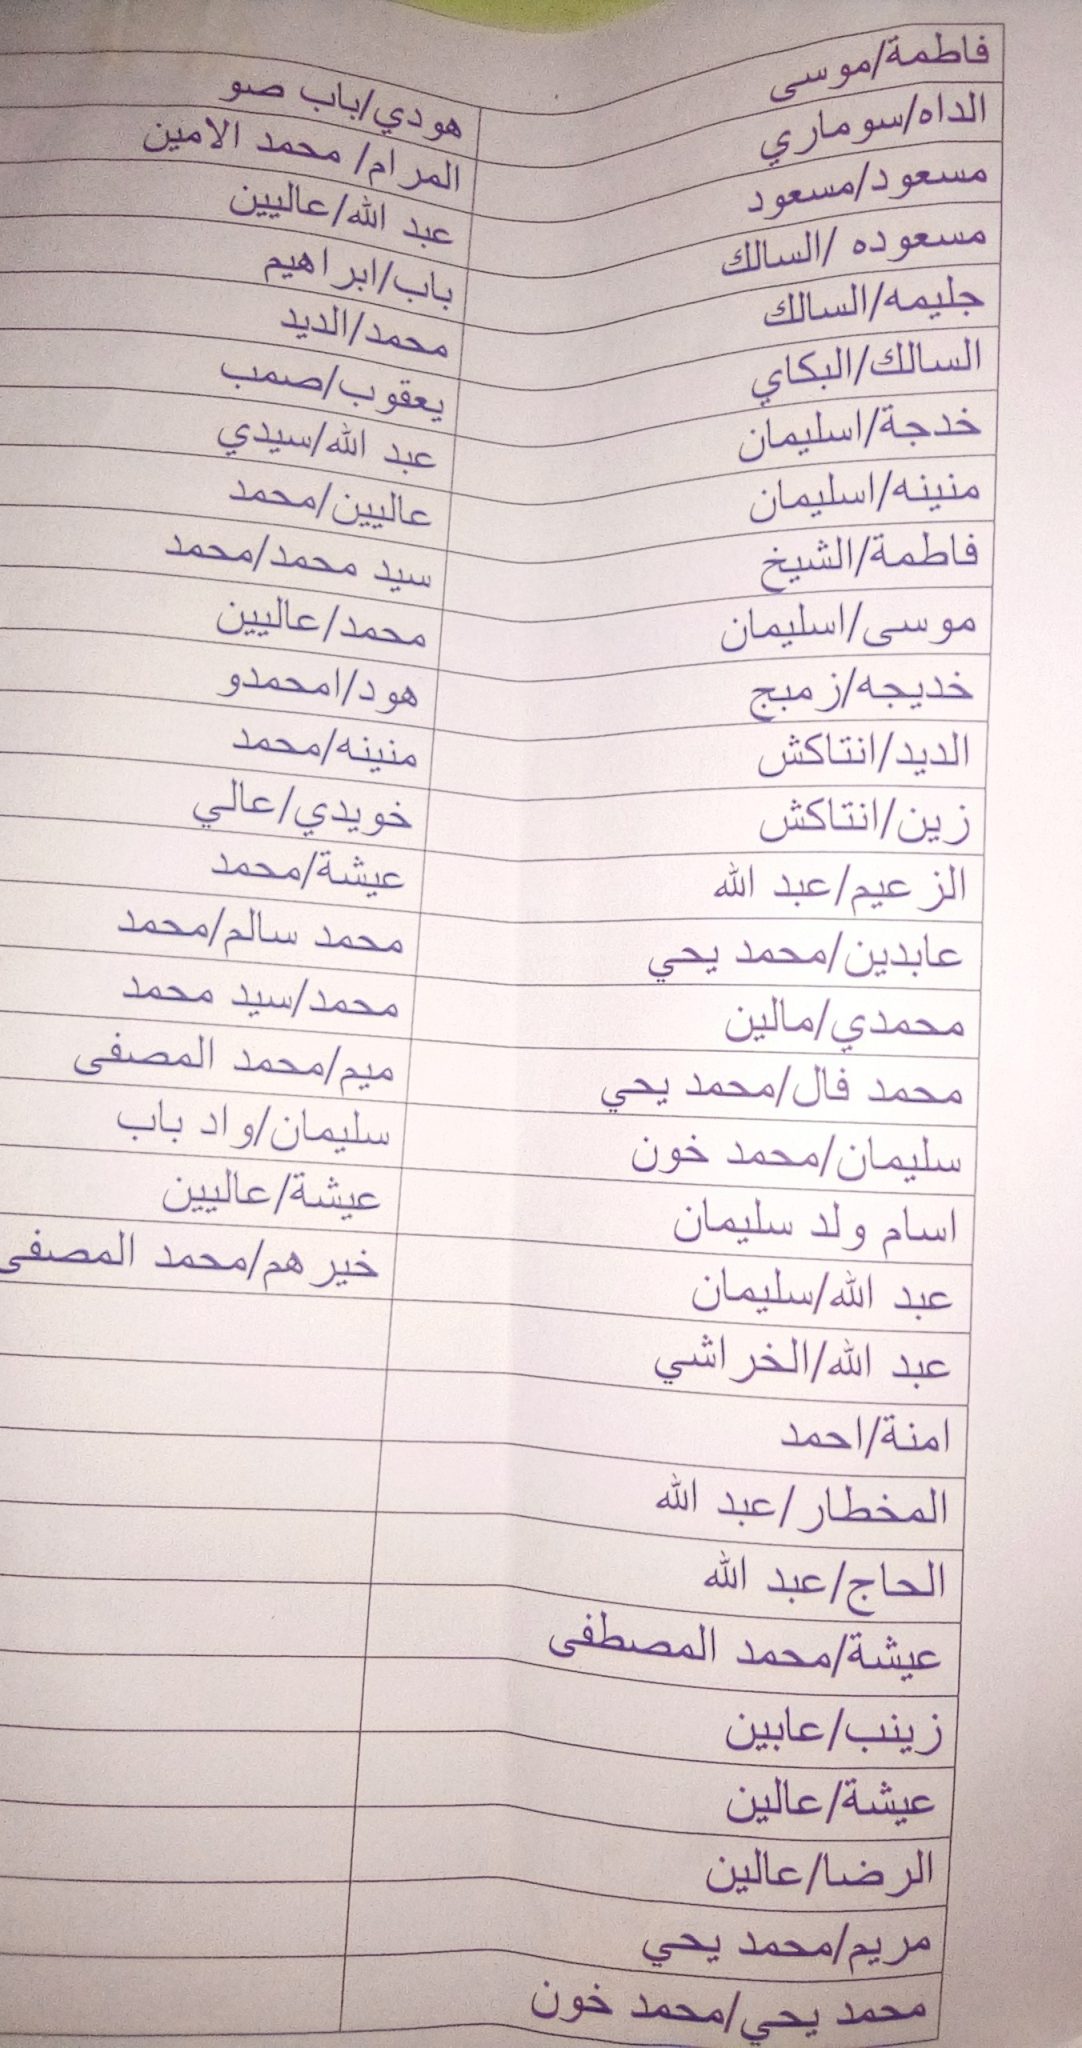 فاطمة/موسى
الداه/سوماري
مسعود/مسعود
مسعوده /السالك
جليمه/السالك
السالك/البكاي
خدجة/اسليمان
منينه/اسليمان
فاطمة/الشيخ
موسى/اسليمان
خديجه/زمبج
الديد/انتاكش
زين/انتاكش
الزعيم/عبد الله
عابدين/محمد يحي
محمدي/مالين
محمد فال/محمد يحي
سليمان/محمد خون
اسام ولد سليمان
عبد الله/سليمان
عبد الله/الخراشي
امنة/احمد
المخطار/عبد الله
الحاج/عبد الله
عيشة/محمد المصطفى
زينب/عابين
عيشة/عالين
الرضا/عالين
مريم/محمد يحي
محمد يحي/محمد خون
هودي/باب صو
المرام/ محمد الامين
عبد الله/عاليين
باب/ابراهيم
محمد/الديد
يعقوب/صمب
عبد الله/سيدي
عاليين/محمد
سيد محمد/محمد
محمد/عاليين
هود/امحمدو
منينه/محمد
خويدي/عالي
عيشة/محمد
محمد سالم/محمد
محمد/سيد محمد
ميم/محمد المصفى
سليمان/واد باب
عيشة/عاليين
خيرهم/محمد المصفى